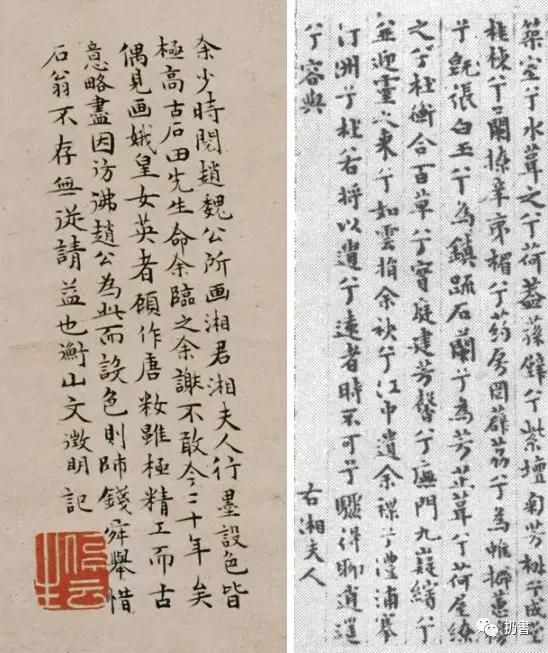 余少時閲趙魏公所画湘君湘夫人行墨設色皆
極高古石田先生命余臨之余謝不敢今二十年矣
偶見画娥皇女英者顧作唐粧雖極精工而古
意略盡因彷彿趙公為此而設色則師錢舜舉惜
石翁不存無從請益也衡山文徵明記
築室兮水葺之兮荷蓋蓀壁兮紫壇匊芳椒兮成堂
桂棟兮蘭橑辛夷楣兮药房罔薜荔兮為帷擗蕙櫋
兮既張白玉兮為鎮疏石蘭兮為芳芷葺兮荷屋繚
之兮杜衡合百草兮實庭建芳馨兮廡門九嶷繽兮
並迎靈之來兮如雲捐余袂兮江中遺余褋兮澧浦搴
汀洲兮杜若將以遺兮遠者時不可兮驟得聊逍遥
兮容與
右湘夫人
扔書